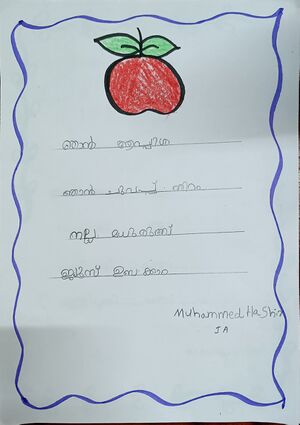 ഞാൻ ആപ്പിൾ
ഞാൻ ചുവപ്പ് നിറം
നല്ല മധുരമുണ്ട്
ജ്യൂസ് ഉണ്ടാക്കാം
Muhammed Hashin
I A